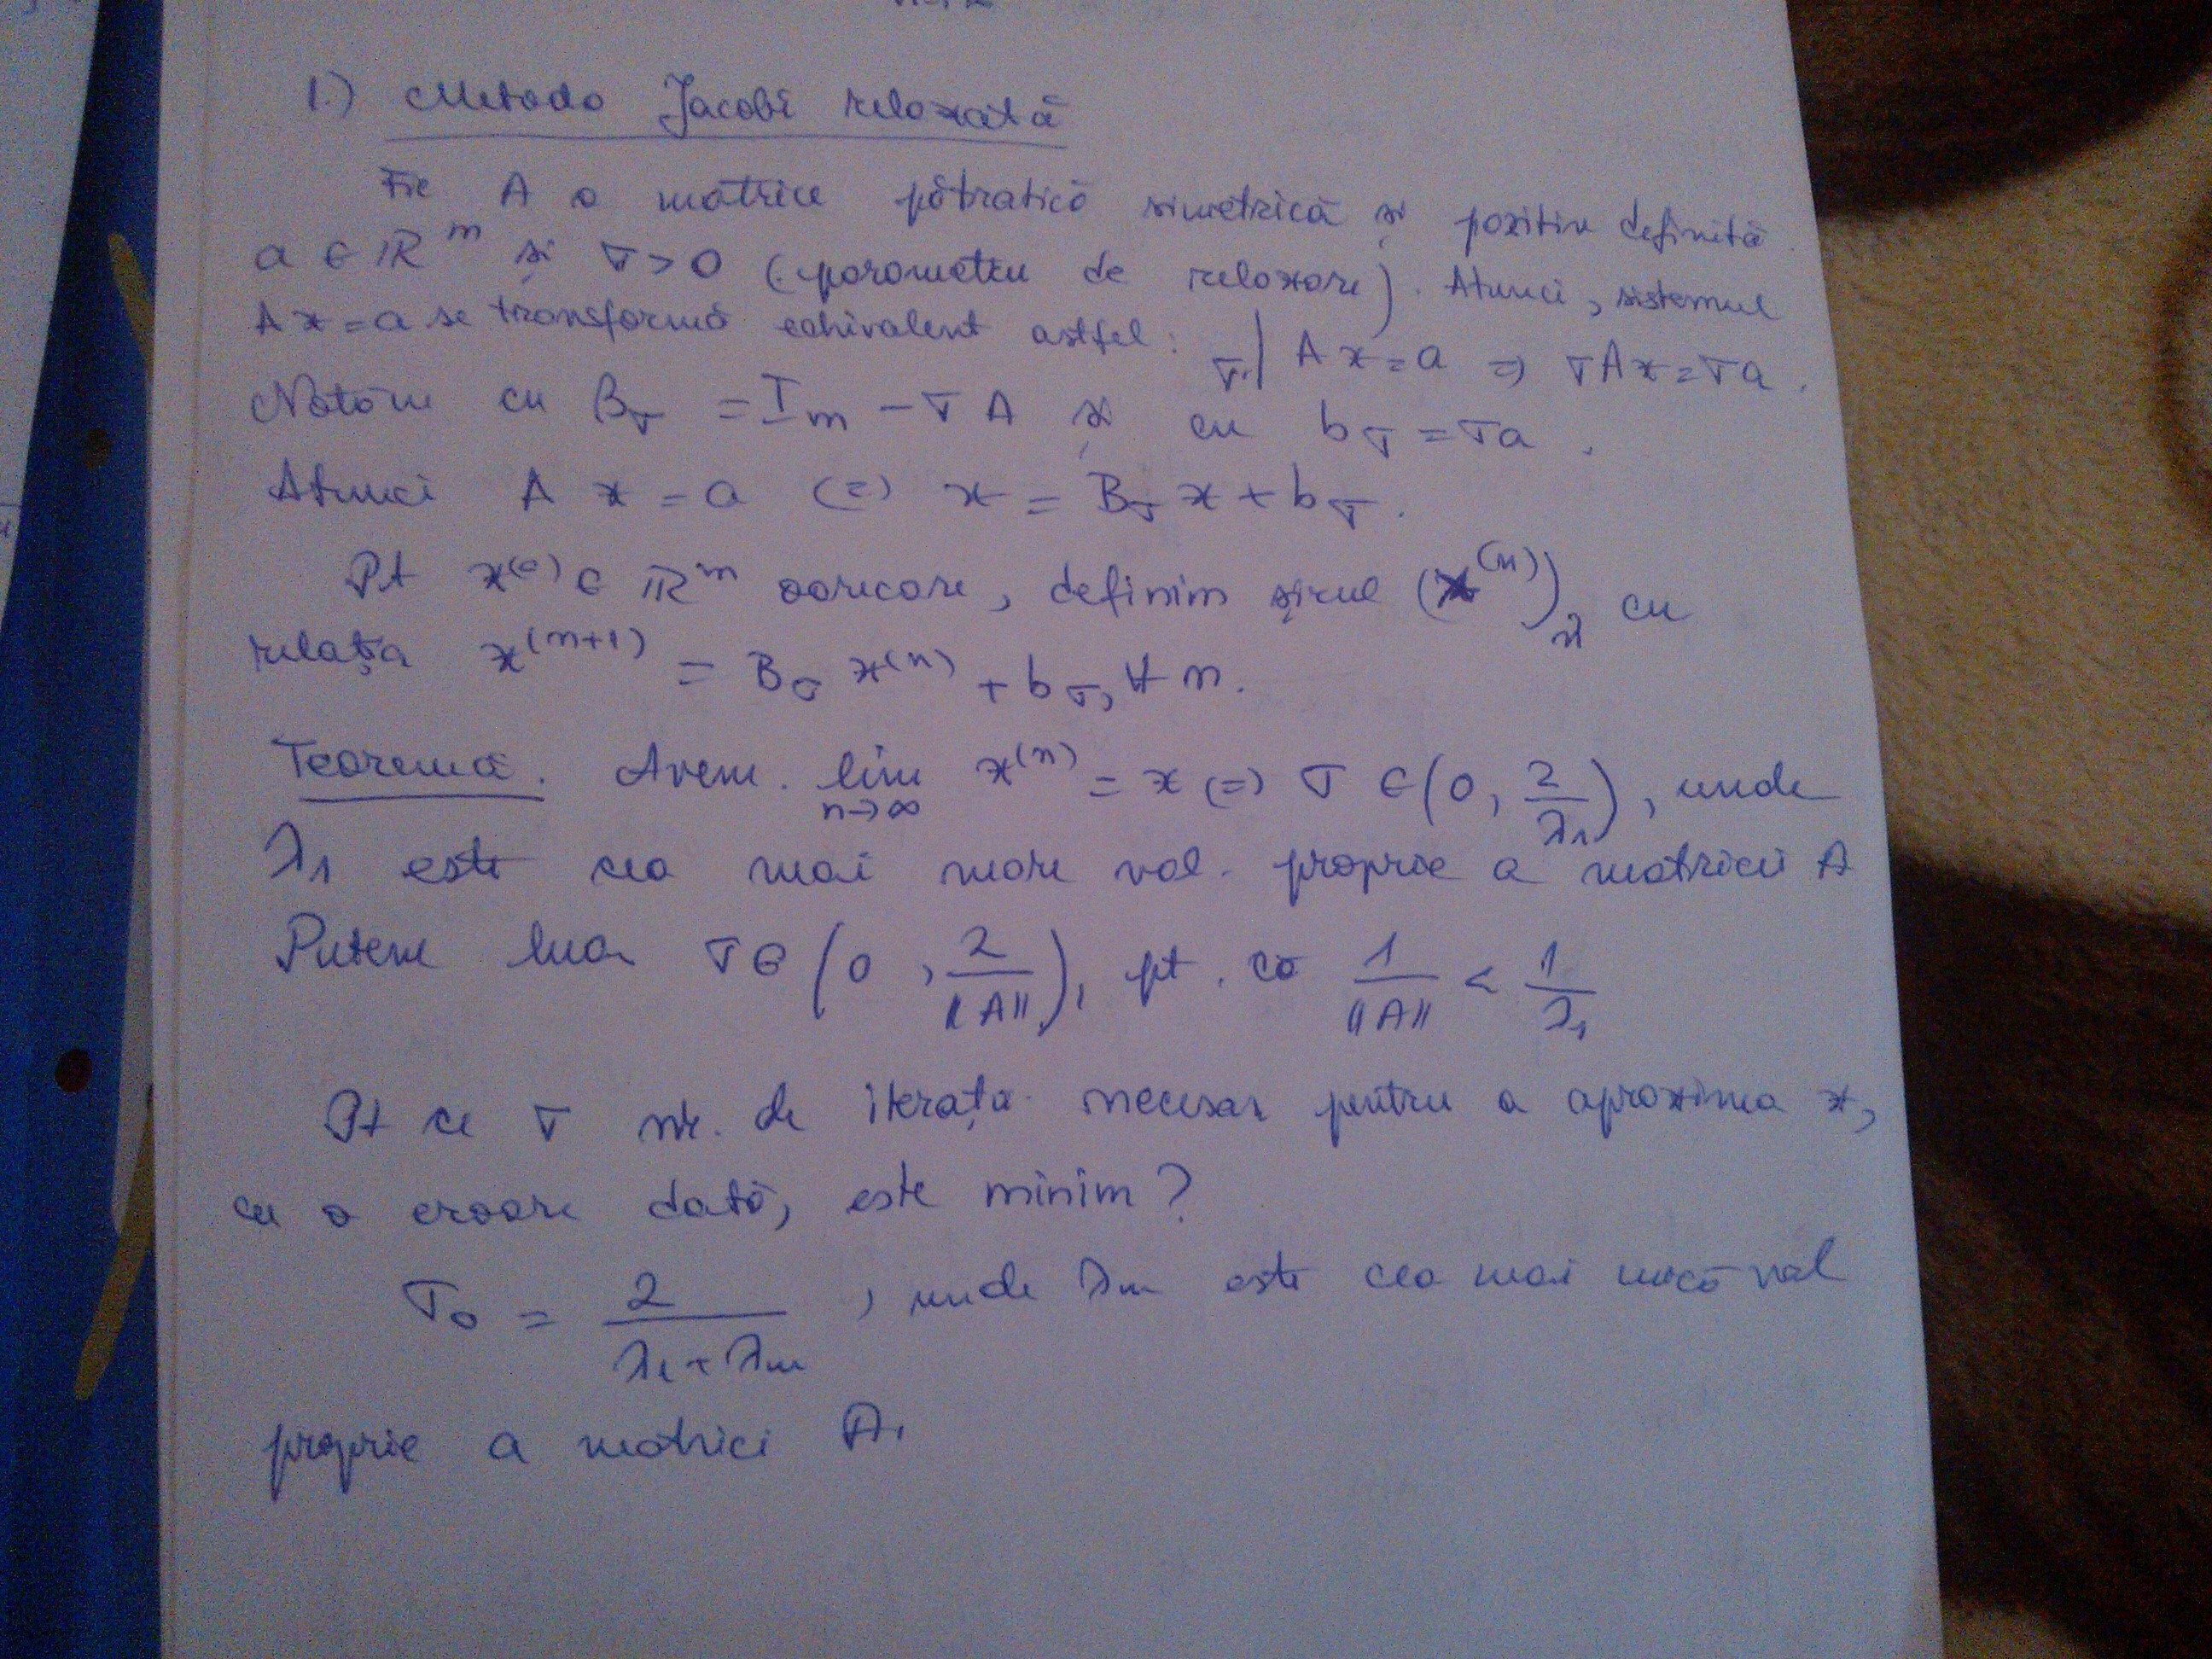 1.) Metoda Jacobi relaxată
Fie A o matrice pătratică simetrică și pozitiv definită.
a ∈ ℝ^m și σ > 0 (parametru de relaxare). Atunci, sistemul
Ax = a se transformă echivalent astfel: σ·| Ax = a ⇒ σAx = σa.
Notăm cu B_σ = I_m − σA și cu b_σ = σa.
Atunci Ax = a (=) x = B_σ x + b_σ.
Pt x^(0) ∈ ℝ^m oarecare, definim șirul (x^(n))_n cu
relața x^(n+1) = B_σ x^(n) + b_σ, ∀ n.
Teoremă. Avem. lim_{n→∞} x^(n) = x (=) σ ∈ (0, 2/λ₁), unde
λ₁ este cea mai mare val. proprie a matricii A
Putem lua σ ∈ (0, 2/‖A‖), pt. că 1/‖A‖ < 1/λ₁
Pt ce σ nr. de iterața necesar pentru a aproxima x,
cu o eroare dată, este minim?
σ₀ = 2/(λ₁ + λ_m), unde λ_m este cea mai mică val
proprie a matrici A.